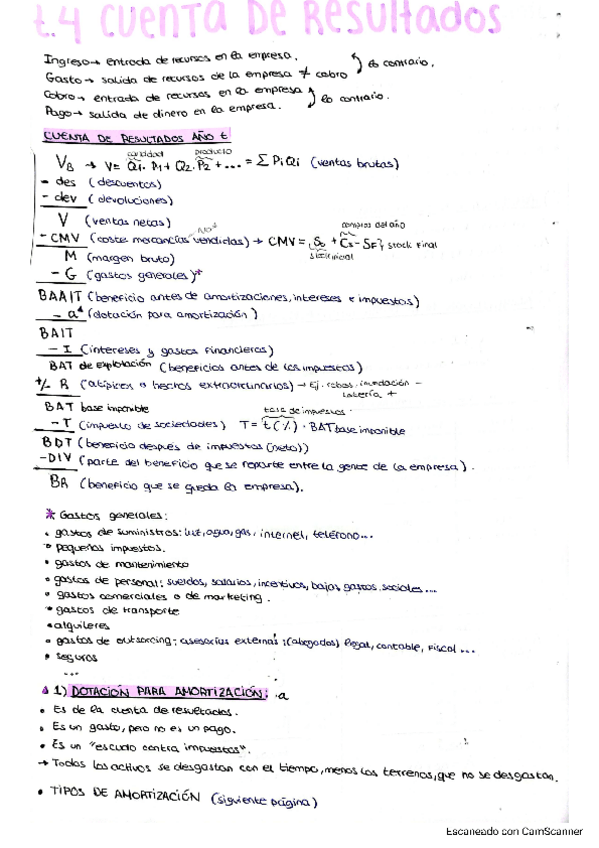 t.4 CUENTA DE RESULTADOS
Ingreso → entrada de recursos en la empresa.
Gasto → salida de recursos de la empresa ≠ cobro lo contrario.
Cobro → entrada de recursos en la empresa
Pago → salida de dinero en la empresa. lo contrario.
CUENTA DE RESULTADOS AÑO t
cantidad producto
VB → V= Q1. P1 + Q2. P2 + ... = Σ PiQi (ventas brutas)
- des (descuentos)
- dev (devoluciones)
V (ventas netas)
NO compras del año
- CMV (coste mercancías vendidas) → CMV = S0 + Cs - SF} stock final
M (margen bruto) stock inicial
- G (gastos generales)*
BAAIT (beneficio antes de amortizaciones, intereses e impuestos)
- a (dotación para amortización)
BAIT
- I (intereses y gastos financieros)
BAT de explotación (beneficios antes de los impuestos)
+/- R (atípicos o hechos extraordinarios) → Ej. robos, inundación -
lotería +
BAT base imponible tasa de impuestos
- T (impuesto de sociedades) T = t (%) · BAT base imponible
BDT (beneficio después de impuestos (neto))
- DIV (parte del beneficio que se reparte entre la gente de la empresa).
BR (beneficio que se queda la empresa).
* Gastos generales:
• gastos de suministros: luz, agua, gas, internet, teléfono...
• pequeños impuestos.
• gastos de mantenimiento
• gastos de personal: sueldos, salarios, incentivos, bajas, gastos sociales...
• gastos comerciales o de marketing.
• gastos de transporte
• alquileres
• gastos de outsorcing: asesorías externas: (abogados) legal, contable, fiscal...
• seguros
...
1) DOTACIÓN PARA AMORTIZACIÓN: a
• Es de la cuenta de resultados.
• Es un gasto, pero no es un pago.
• Es un "escudo contra impuestos".
→ Todos los activos se desgastan con el tiempo, menos los terrenos, que no se desgastan.
• TIPOS DE AMORTIZACIÓN (siguiente página)
Escaneado con CamScanner